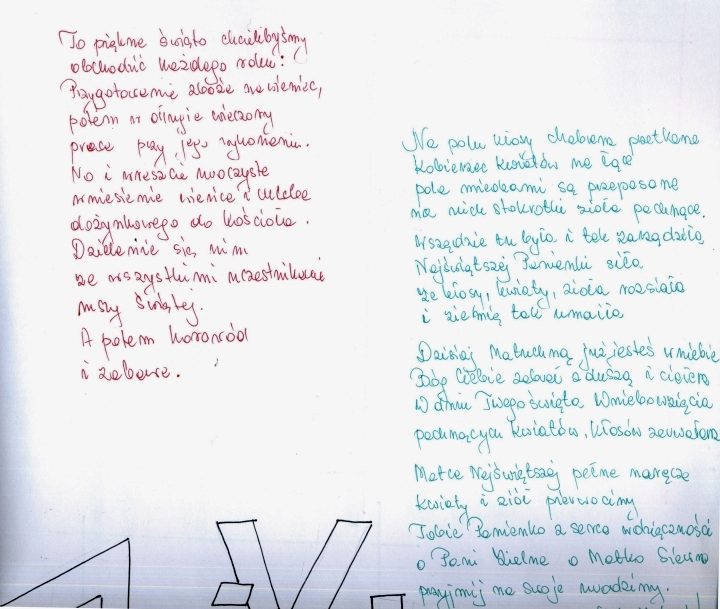 To piękne święto chcielibyśmy
obchodzić każdego roku:
Przygotowanie zboża na wieniec,
potem w długie wieczory
prace przy jego wykonaniu.
No i wreszcie uroczyste
wniesienie wieńca i chleba
dożynkowego do kościoła.
Dzielenie się nim
ze wszystkimi uczestnikami
mszy świętej.
A potem korowód
i zabawa.
Na polu kłosy chabrem przetkane
Kobierzec kwiatów na łące
pola miedzami są przepasane
na nich stokrotki zioła pachnące.
Wszędzie tu była i tak zarządziła
Najświętszej Panienki siła
że kłosy, kwiaty, zioła rozsiała
i ziemię tak umaiła
Dzisiaj Matuchną już jesteś w niebie
Bóg Ciebie zabrał z duszą i ciałem
W dniu Twego święta Wniebowzięcia
pachnących kwiatów, kłosów
Matce Najświętszej pełne naręcze
kwiaty i ziół pierwociny
Tobie Panienko z serca wdzięczności
o Pani Zielna o Matko Siewna
przyjmij na swoje urodziny.